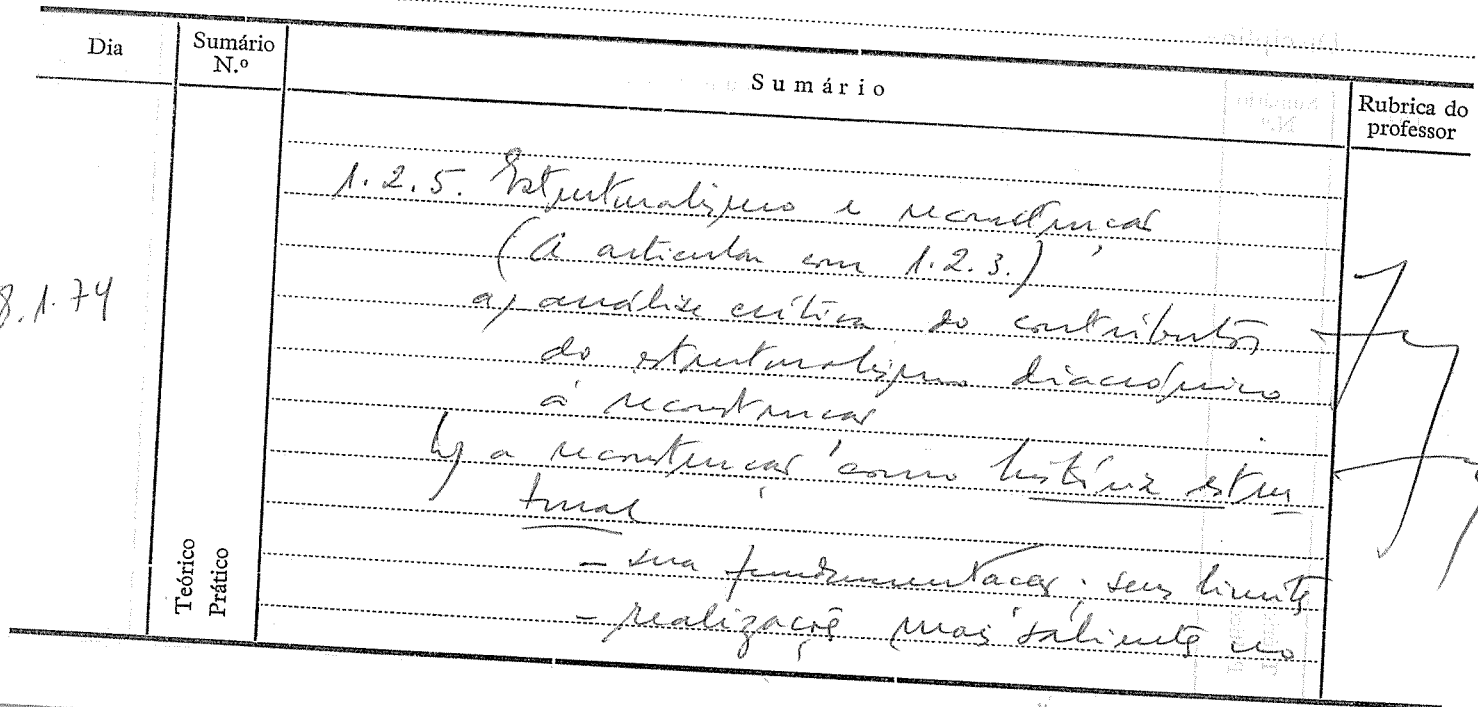 Dia
Sumário
N.º
Sumário
Rubrica do
professor
1.2.5. Estruturalismo e reconstrução
(A articular com 1.2.3.)
8.1.74
a) análise crítica do contributos
do estruturalismo diacrónico
à reconstrução
b) a reconstrução como história estru
tural
Teórico
Prático
- sua fundamentação; seus limites
- realizações mais salientes no